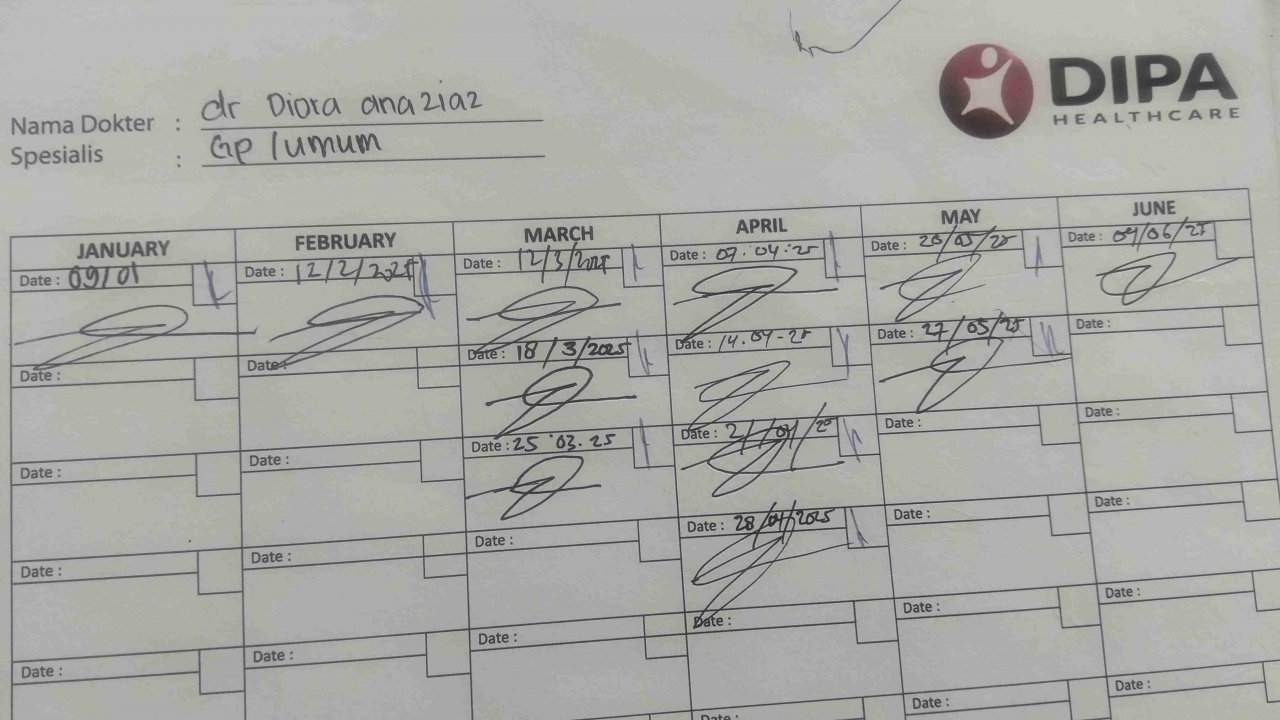 DIPA
HEALTHCARE
Nama Dokter : dr Diora anaziaz
Spesialis : GP / umum
JANUARY FEBRUARY MARCH APRIL MAY JUNE
Date : 09/01 Date : 12/2/2025 Date : 12/3/2025 Date : 07.04.25 Date : 20/05/25 Date : 04/06/25
Date : Date : Date : 18/3/2025 Date : 14.04-25 Date : 27/05/25 Date :
Date : Date : Date : 25.03.25 Date : 21/04/25 Date : Date :
Date : Date : Date : Date : 28/04/2025 Date : Date :
Date : Date : Date : Date : Date : Date :
Date : Date :